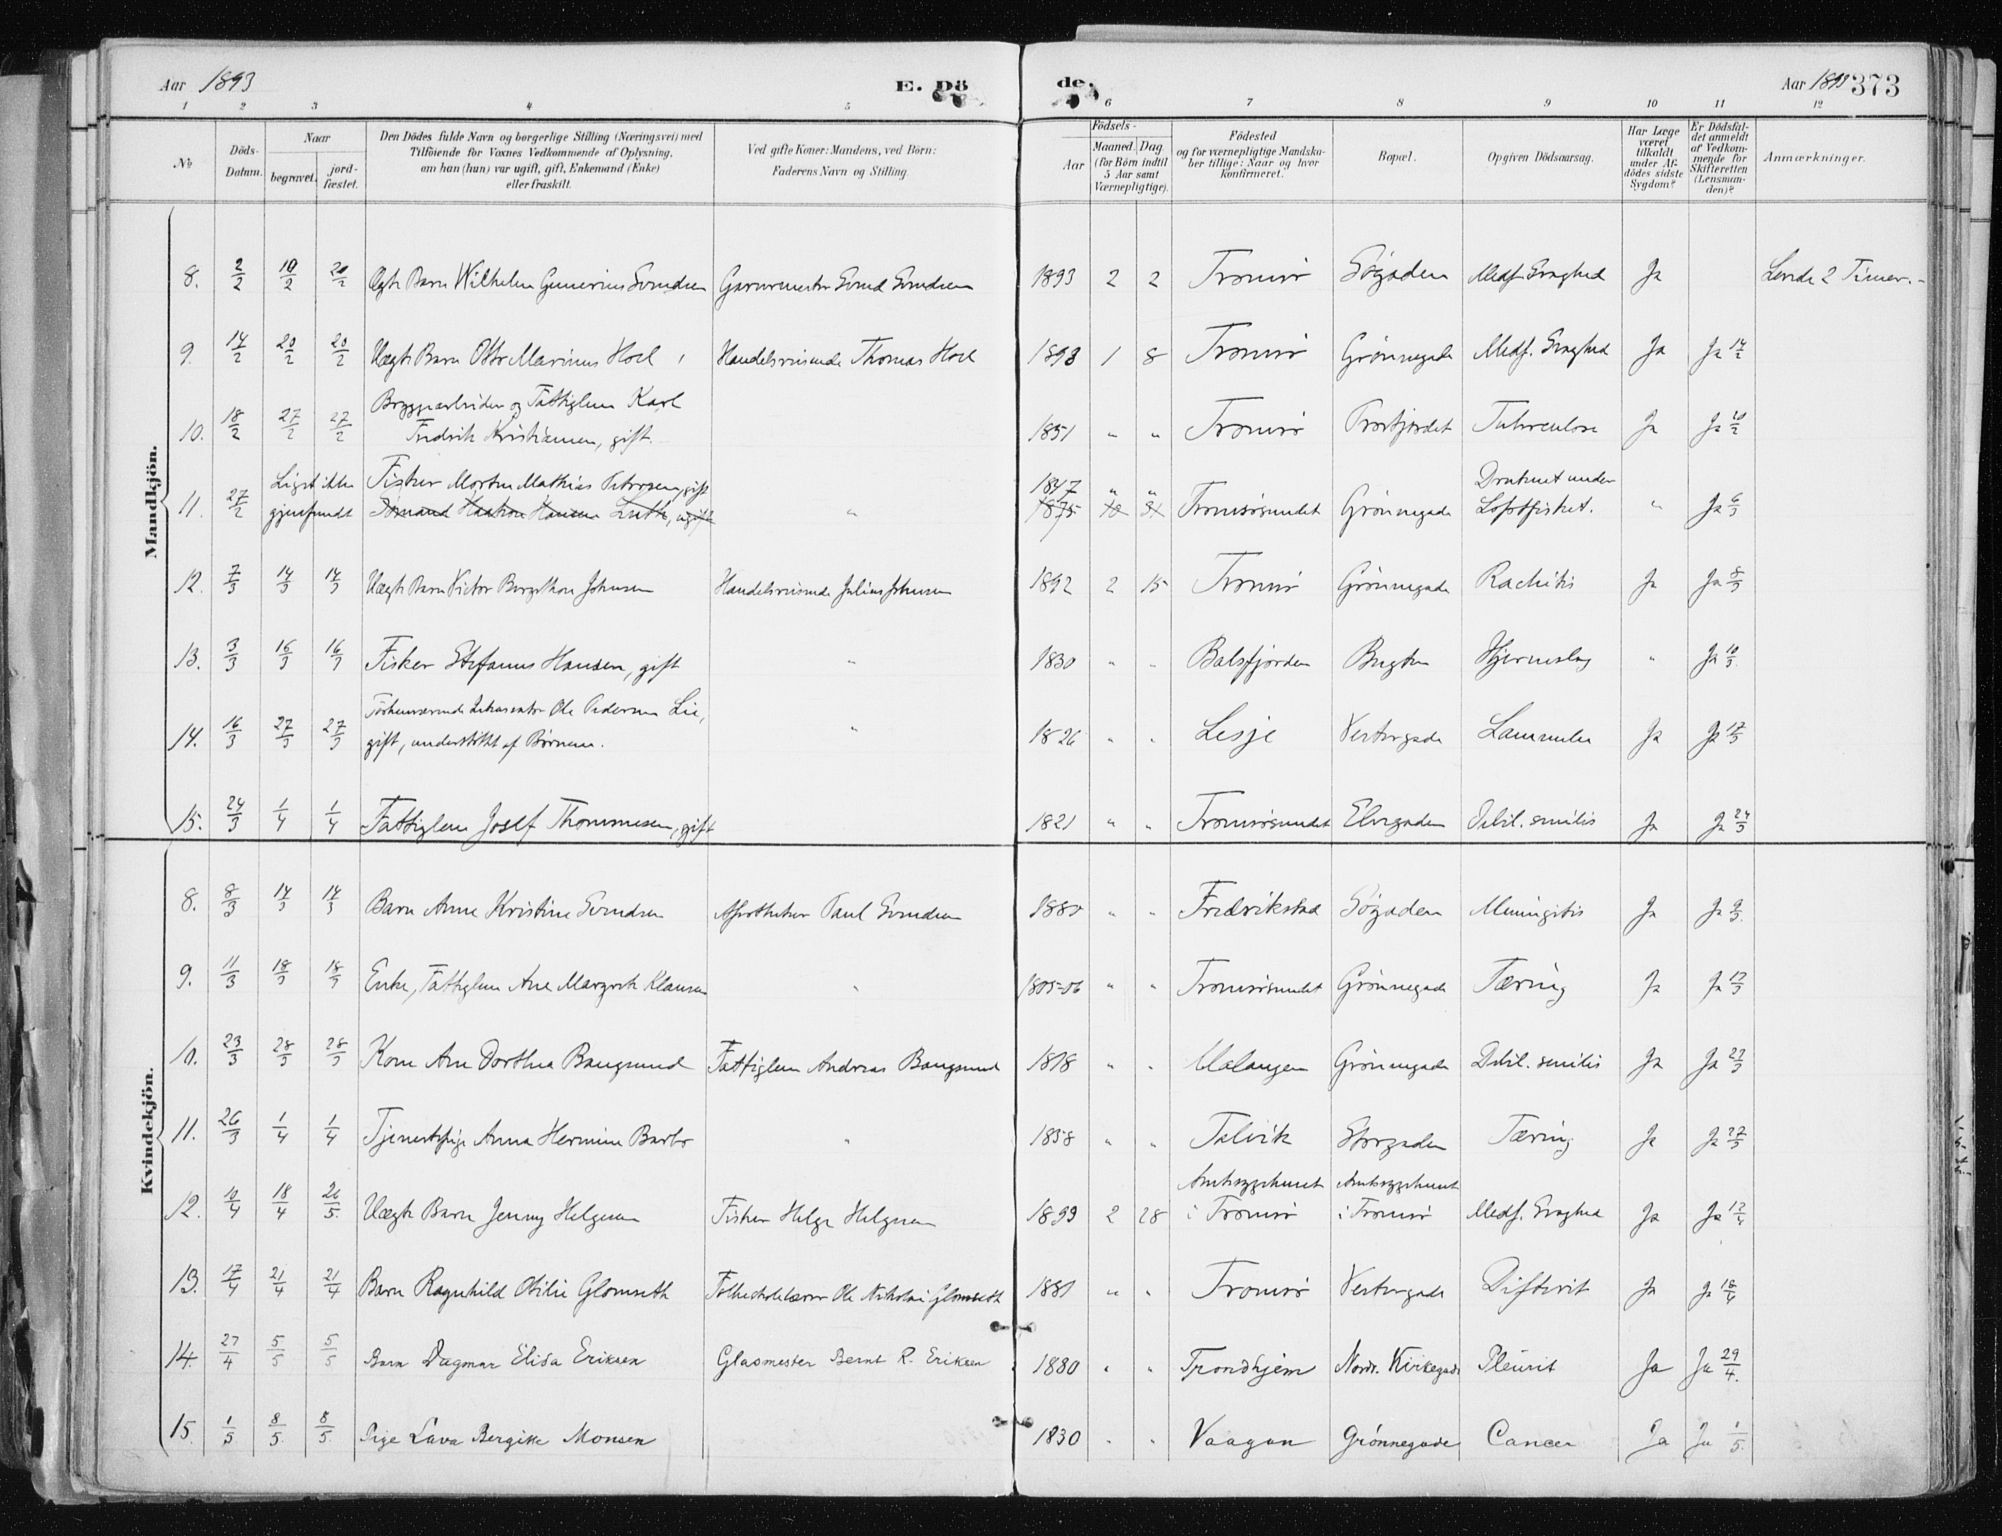 Aar 1893
E. Dö
de.
Aar 1893 373
1 2 3 4 5 6 7 8 9 10 11 12
No
Döds-Datum.
Naar
begravet.
jord-fæstet.
Den Dödes fulde Navn og borgerlige Stilling (Næringsvei) med
Tilföiende for Voxnes Vedkommende af Oplysning,
om han (hun) var ugift, gift, Enkemand (Enke)
eller fraskilt.
Ved gifte Koner: Mandens, ved Börn:
Faderens Navn og Stilling.
Födsels-
Aar
Maaned. Dag
(for Börn indtil
5 Aar samt
Værnepligtige).
Födested
og for værnepligtige Mandska-
ber tillige: Naar og hvor
konfirmeret.
Bopæl.
Opgiven Dödsaarsag.
Har Læge
været
tilkaldt
under Af-
dödes sidste
Sygdom?
Er Dödsfal-
det anmeldt
af Vedkom-
mende for
Skifteretten
(Lensman-
den)?
Anmærkninger.
Mandkjön.
8. 2/2 19/2 20/2 Ægte Barn Wilhelm Gunerius Svendsen Garvermester Svend Svendsen 1893 2 2 Tromsø Søgaden Medf. Svaghed Ja Levede 2 Timer.-
9. 14/2 20/2 20/2 Uægte Barn Otto Marinus Hoel Handelsreisende Thomas Hoel 1893 1 8 Tromsø Grønnegade Medf. Svaghed Ja Ja 14/2
10. 18/2 27/2 27/2 Bryggearbeider og Fattiglem Karl
Fredrik Kristiansen, gift. 1851 " " Tromsø Tuberculose Ja Ja 20/2
11. 27/2 Liget ikke Fisker Morten Mathias Petersen, gift 1847 " " Druknet under
gjenfundt Sømand Haakon Hansen Luth, ugift " 1875 Tromsøsundet Grønnegade Lofotfisket. " Ja 6/3
12. 7/3 14/3 14/3 Uægte Barn Victor Johnsen Handelsreisende Julius Johnsen 1892 2 15 Tromsø Grønnegade Rachitis Ja Ja 8/3
13. 3/3 16/3 16/3 Fisker Stefanus Hansen, gift " 1830 " " Balsfjorden Bugten Hjerneslag " Ja 10/3.
14. 16/3 27/3 27/3 Forhenværende Ole Pedersen Lie,
gift, understøttet af Børnene. " 1826 " " Lesje Vestregade Lammelse Ja Ja 17/3
15. 24/3 1/4 1/4 Fattiglem Josef Thommesen, gift 1821 " " Tromsøsundet Elvegaden Debil. senilis Ja Ja 24/3
Kvindekjön.
8. 8/3 14/3 14/3 Barn Anne Kristine Svendsen Apotheker Paul Svendsen 1880 " " Fredrikstad Søgaden Meningitis Ja Ja 9/3.
9. 11/3 18/3 18/3 Enke, Fattiglem Ane Margrete Klausen " 1805-06 " " Tromsøsundet Grønnegade Tæring Ja Ja 13/3
10. 23/3 28/3 28/3 Kone Ane Dorthea Bangsund Fattiglem Andreas Bangsund 1818 " " Malangen Grønnegade Debil. senilis Ja Ja 27/3
11. 26/3 1/4 1/4 Tjenestepige Anna Hermine Barbo " 1858 " " Talvik Storgaden Tæring Ja Ja 27/3
12. 10/4 18/4 20/5. Uægte Barn Jenny Helgesen Fisker Helge Helgesen 1893 2 28 Amtssygehuset
i Tromsø Amtssygehuset
i Tromsø Medf. Svaghed Ja Ja 12/4
13. 17/4 21/4 21/4 Barn Ragnhild Otilie Glomseth Folkeskolelærer Ole Nikolai Glomseth 1881 " " Tromsø Vestregade Difterit Ja Ja 18/4
14. 27/4 5/5 5/5 Barn Dagmar Elisa Eriksen Glasmester Bernt R. Eriksen 1880 " " Trondhjem Nordr. Kirkegade Pleurit Ja Ja 29/4.
15. 1/5 8/5. 8/5. Pige Lava Bergitte Monsen 1830 " " Vaagan Grønnegade Cancer Ja Ja 1/5.